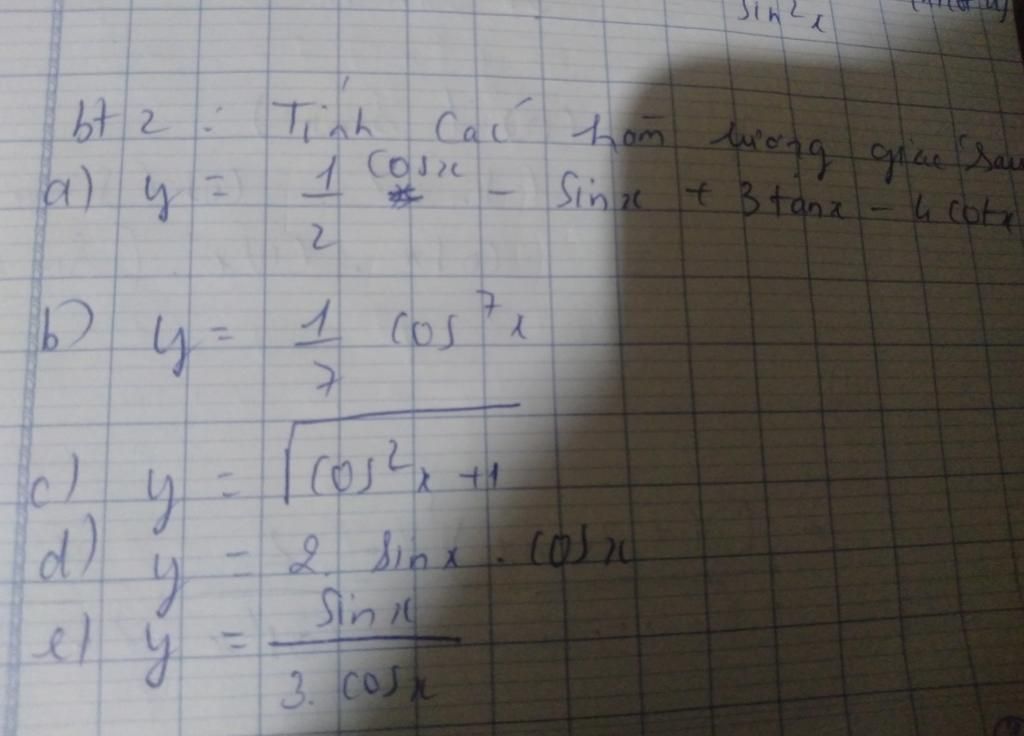 sin²x
bt 2 : Tính các hàm lượng giác sau
a) y = 1/2 cosx - sinx + 3tanx - 4cotx
b) y = 1/7 cos⁷x
c) y = √(cos²x + 1)
d) y = 2. sinx . cosx
e) y = sinx / 3. cosx